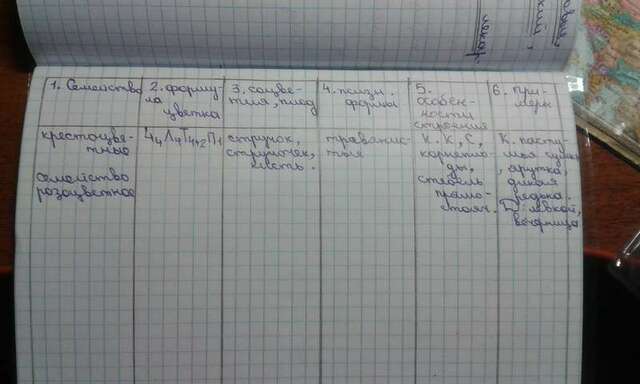 1. Семейство
2. форму-
ла
цветка
3. соцве-
тия, плод
4.
формы
5.
особен-
ности
строения
6. При-
меры
крестоцве-
тные
Ч4Л4Т4+2П1
стручок,
стручочек,
кисть.
травянис-
тые
К. К, С,
корнепло-
ды,
стебель
прямо-
стояч.
К. пасту-
шья сумка
, ярутка,
дикая
редька.
Д. левкой,
вечерница
семейство
розоцветное